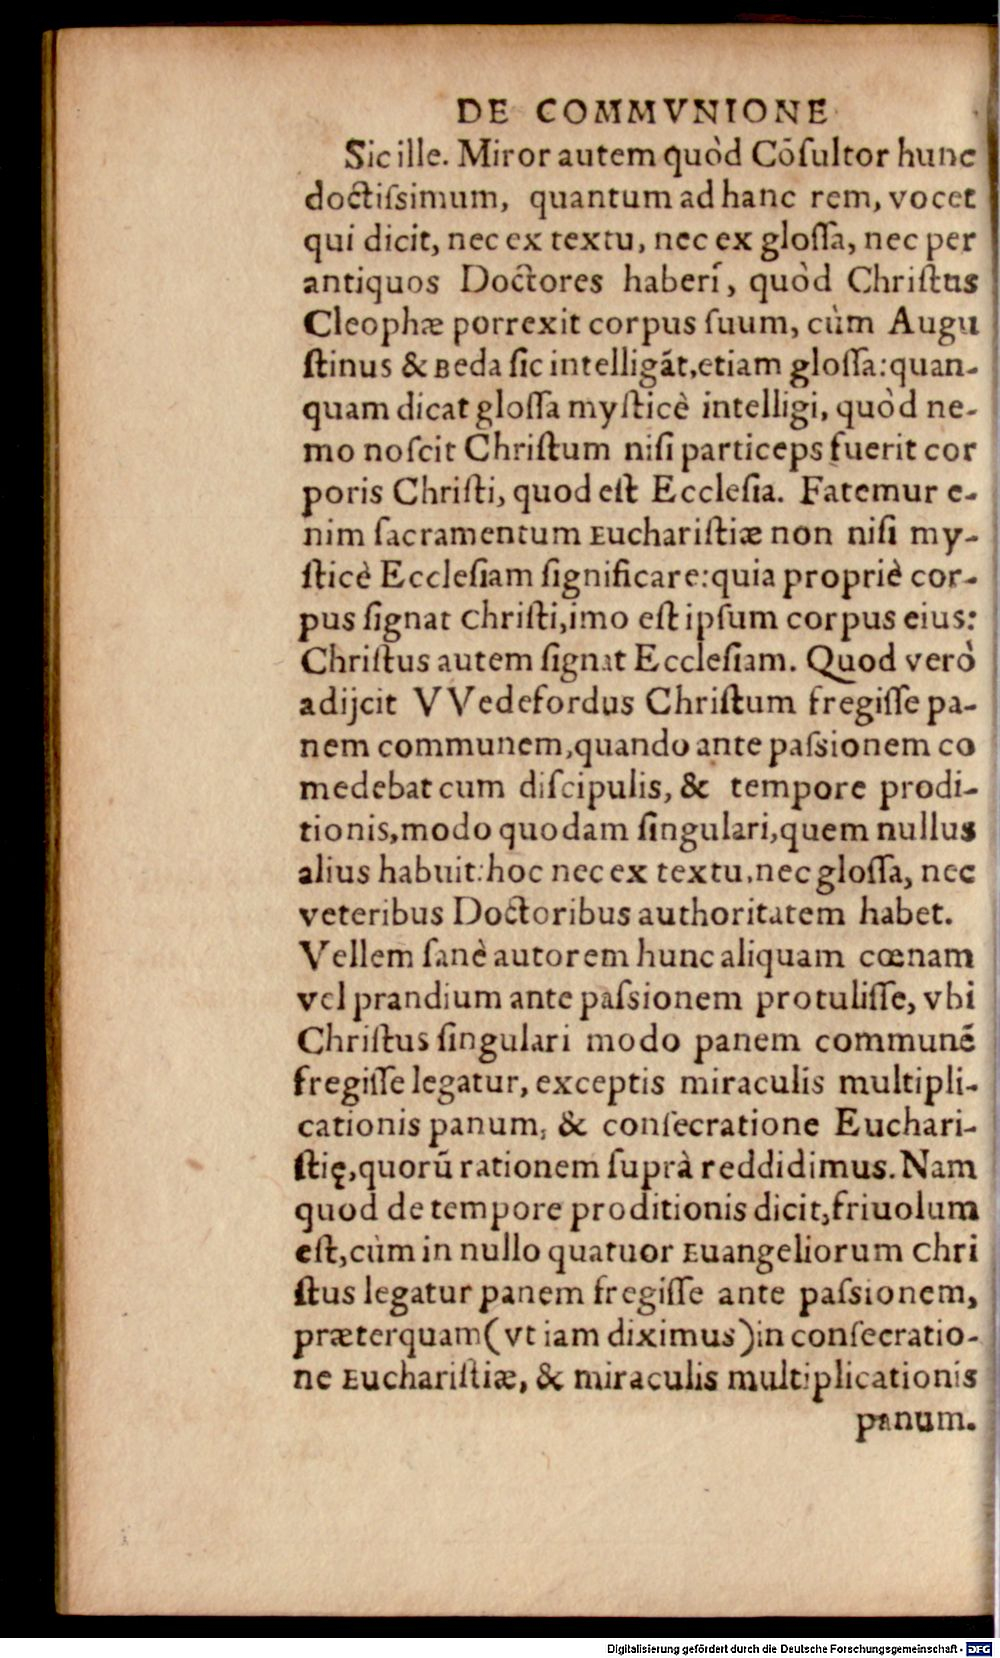 DE COMMVNIONE
Sic ille. Miror autem quòd Cõſultor hunc
doctiſsimum, quantum ad hanc rem, vocet
qui dicit, nec ex textu, nec ex gloſſa, nec per
antiquos Doctores haberi, quòd Chriſtus
Cleophæ porrexit corpus ſuum, cùm Augu
ſtinus & Beda ſic intelligãt, etiam gloſſa: quan-
quam dicat gloſſa myſticè intelligi, quòd ne-
mo noſcit Chriſtum niſi particeps fuerit cor
poris Chriſti, quod eſt Eccleſia. Fatemur e-
nim ſacramentum Euchariſtiæ non niſi my-
ſticè Eccleſiam ſignificare: quia propriè cor-
pus ſignat Chriſti, imo eſt ipſum corpus eius:
Chriſtus autem ſignat Eccleſiam. Quod verò
adijcit VVedefordus Chriſtum fregiſſe pa-
nem communem, quando ante paſsionem co
medebat cum diſcipulis, & tempore prodi-
tionis, modo quodam ſingulari, quem nullus
alius habuit: hoc nec ex textu, nec gloſſa, nec
veteribus Doctoribus authoritatem habet.
Vellem ſanè autorem hunc aliquam cœnam
vel prandium ante paſsionem protuliſſe, vbi
Chriſtus ſingulari modo panem communẽ
fregiſſe legatur, exceptis miraculis multipli-
cationis panum, & conſecratione Euchari-
ſtię, quorũ rationem ſuprà reddidimus. Nam
quod de tempore proditionis dicit, friuolum
eſt, cùm in nullo quatuor Euangeliorum Chri
ſtus legatur panem fregiſſe ante paſsionem,
præterquam (vt iam diximus) in conſecratio-
ne Euchariſtiæ, & miraculis multiplicationis
panum.
Digitalisierung gefördert durch die Deutsche Forschungsgemeinschaft - DFG